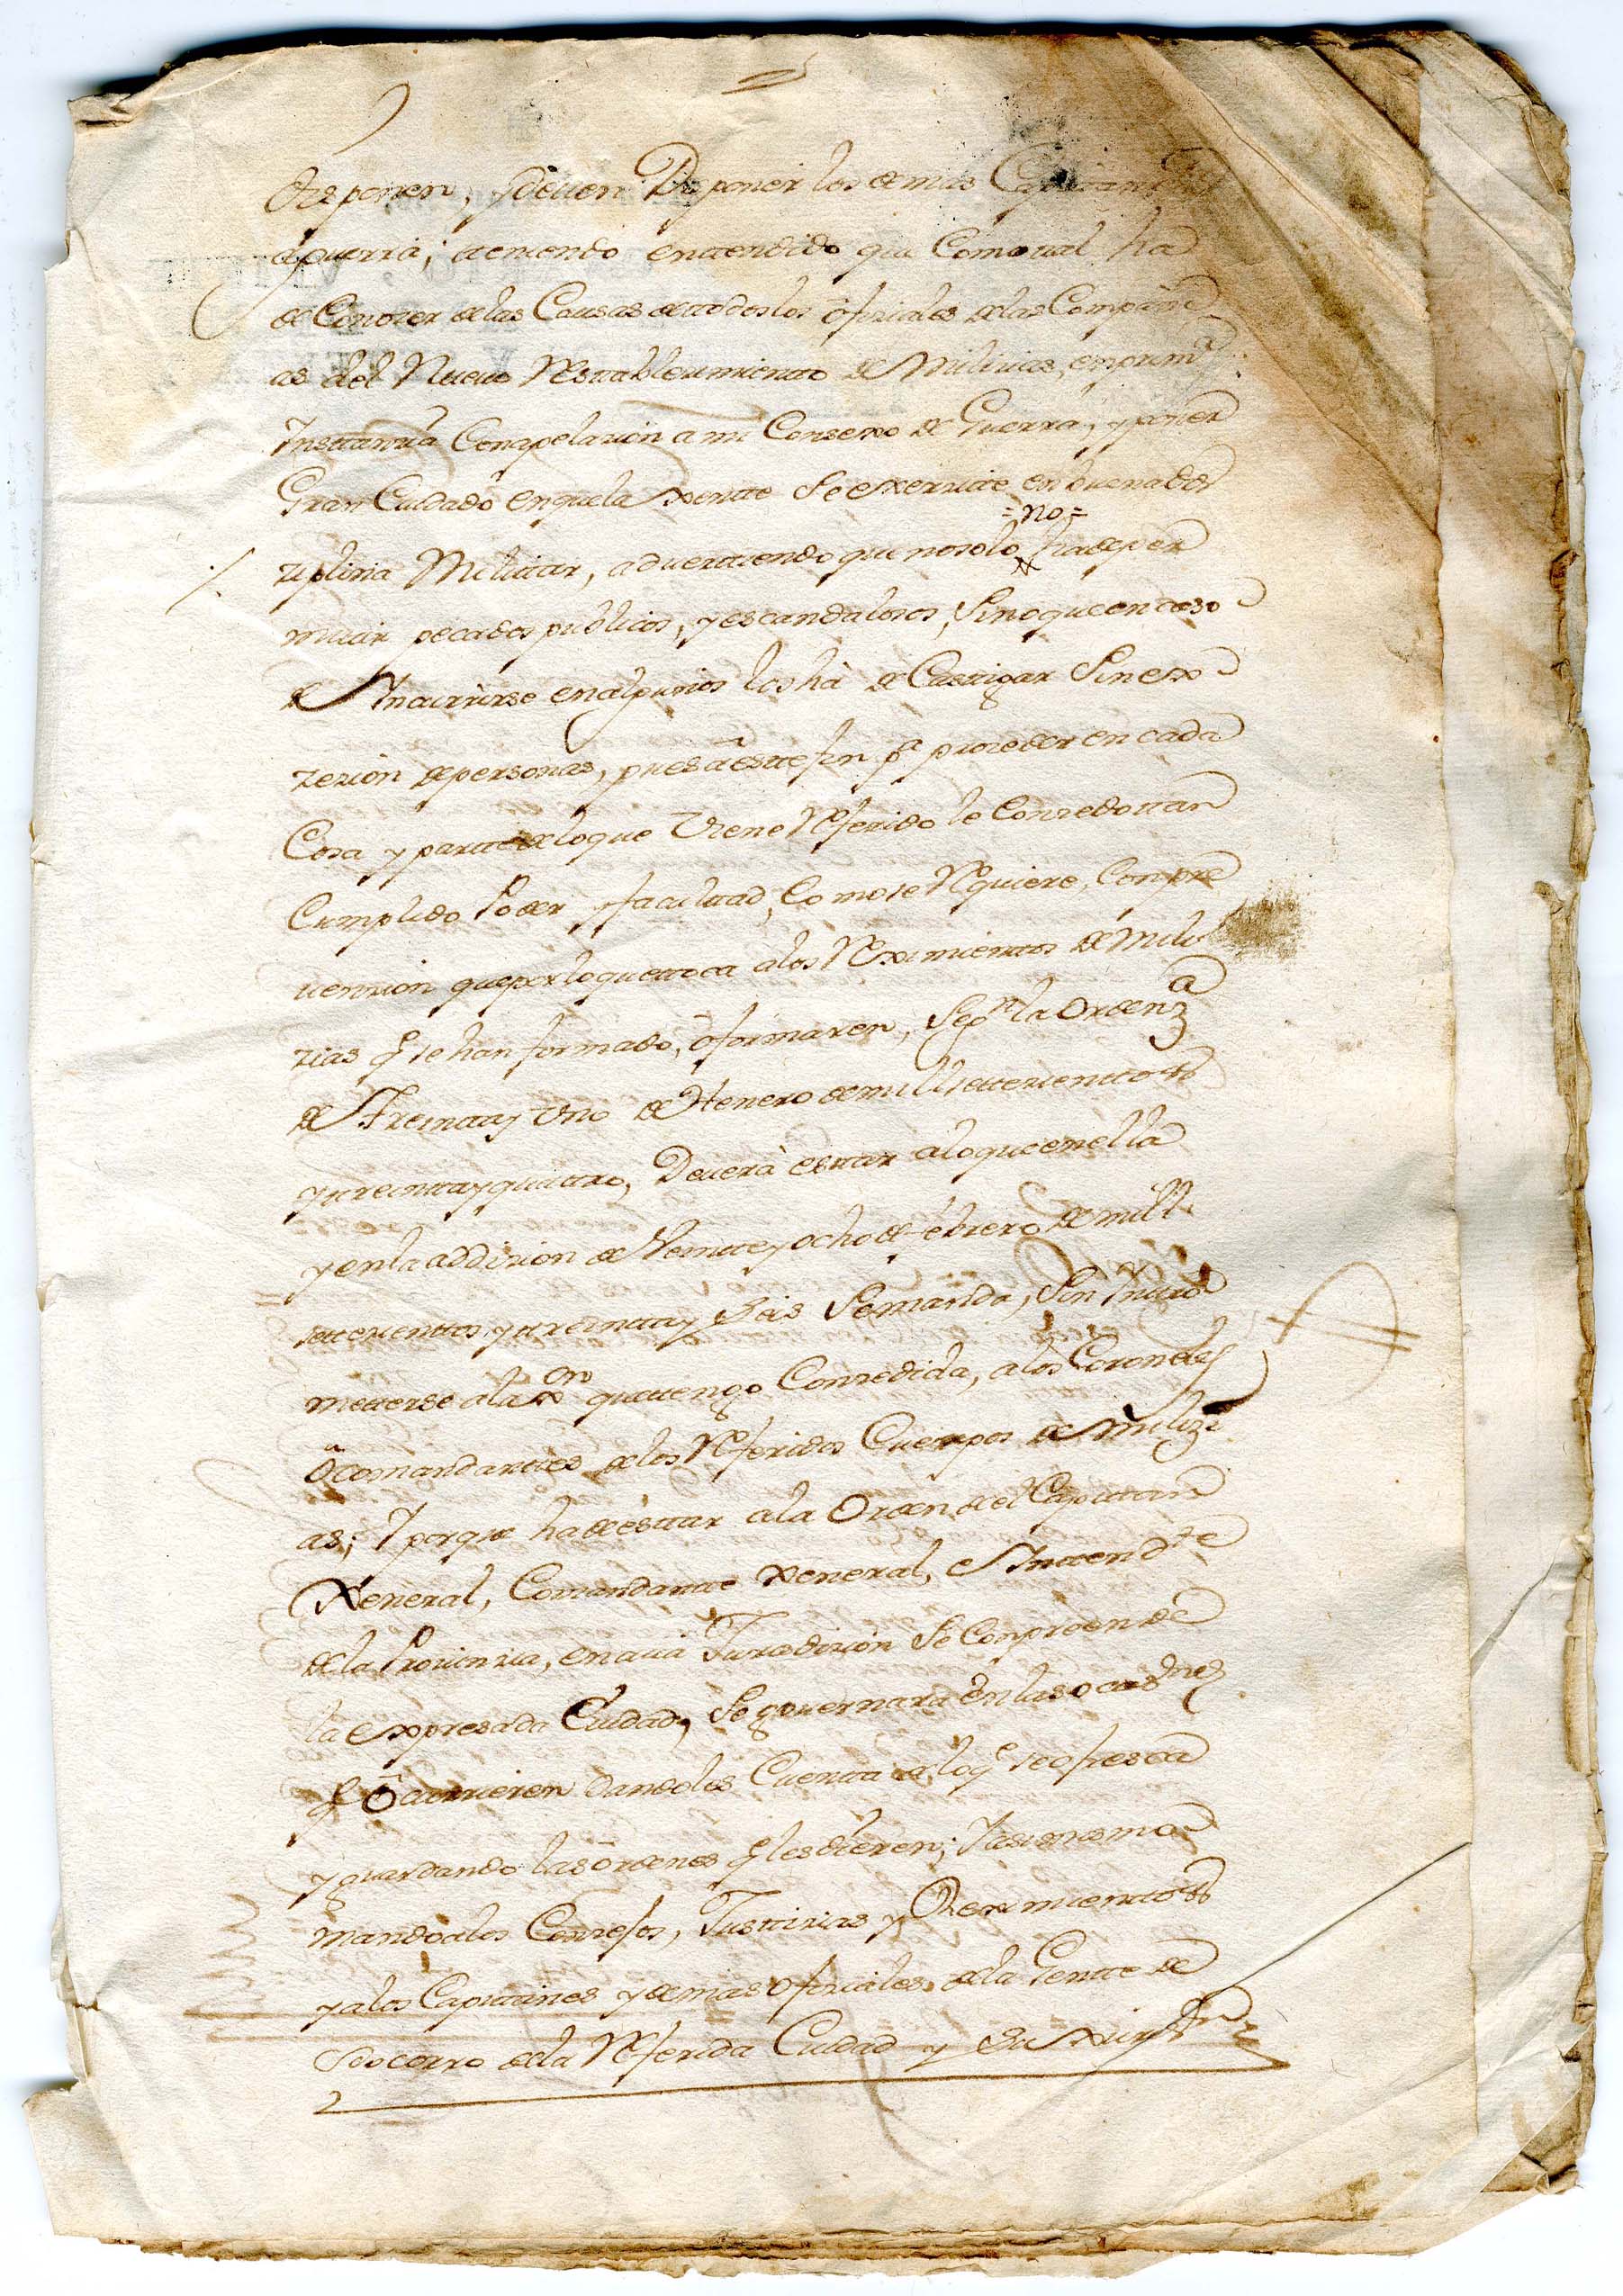 disponen, y deuen Disponer los demas Capitanes
a guerra; teniendo entendido que Como tal ha
de Conozer de las Causas de todos los ofiziales de las Compañi
as del Nueuo Restablezimiento de Milizias, en prim.ª
Instanzia Con apelazion a mi Consexo de Guerra, y poner
Gran Cuidado en que la xente se exerzite en buena dis
=no=
ziplina Militar, aduertiendo que no solo ha de per
mitir pecados publicos, y escandalosos, Sino que en caso
de Incurrirse en algunos los ha de Castigar Sin ex
zezion de personas, pues a este fin p.ª prozeder en cada
Cosa y parte de lo que Viene Referido le Conzedo tan
Cumplido Poder y facultad, Como se Requiere, Con pre
uenzion que por lo que toca a los Reximientos de Mili
zias q se han formado, o formaren, Seg.n la Ordenz.ª
de Treinta y Vno de Henero de mill settezientos
y treinta y quatro, Deuerà estar a lo que en ella
y en la addizion de Veinte y ocho de febrero de mill
settezientos y treinta y Seis Se manda, Sin Intro
metterse a la xon que tengo Conzedida, a los Coroneles
o comandantes de los Referidos Cuerpos de Milizi
as; Y porque ha de estar a la Orden del Capitan
Xeneral, Comandante Xeneral, e Intend.te
de la Prouinzia, en cuia Jurisdizion Se Conprende
la expresada Ciudad, Se gouernara en las ocasiones
q ocurrieren dandoles Cuenta de lo q.e se ofresca
y guardando las ordenes q les dieren; Y asimesmo
mando a los Conzejos, Justizias y Reximientos
y a los Capitanes y demas ofiziales de la Gente de
Socorro de la Referida Ciudad y Su xurisd.n